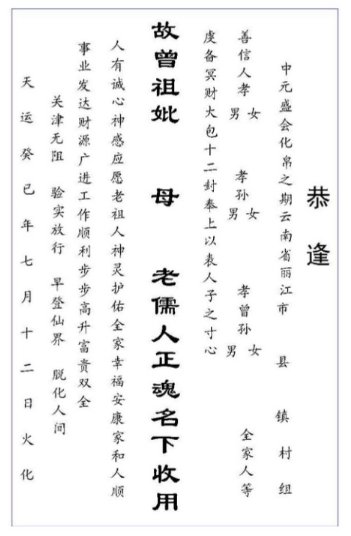 恭逢
中元盛会化帛之期云南省丽江市 县 镇村组
善信人孝男女 孝孙男女 孝曾孙男女 全家人等
虔备冥财大包十二封奉上以表人子之寸心
故曾祖妣 母 老儒人正魂名下收用
人有诚心神感应愿老祖人神灵护佑全家幸福安康家和人顺
事业发达财源广进工作顺利步步高升富贵双全
关津无阻 验实放行 早登仙界 脱化人间
天运癸巳年七月十二日火化